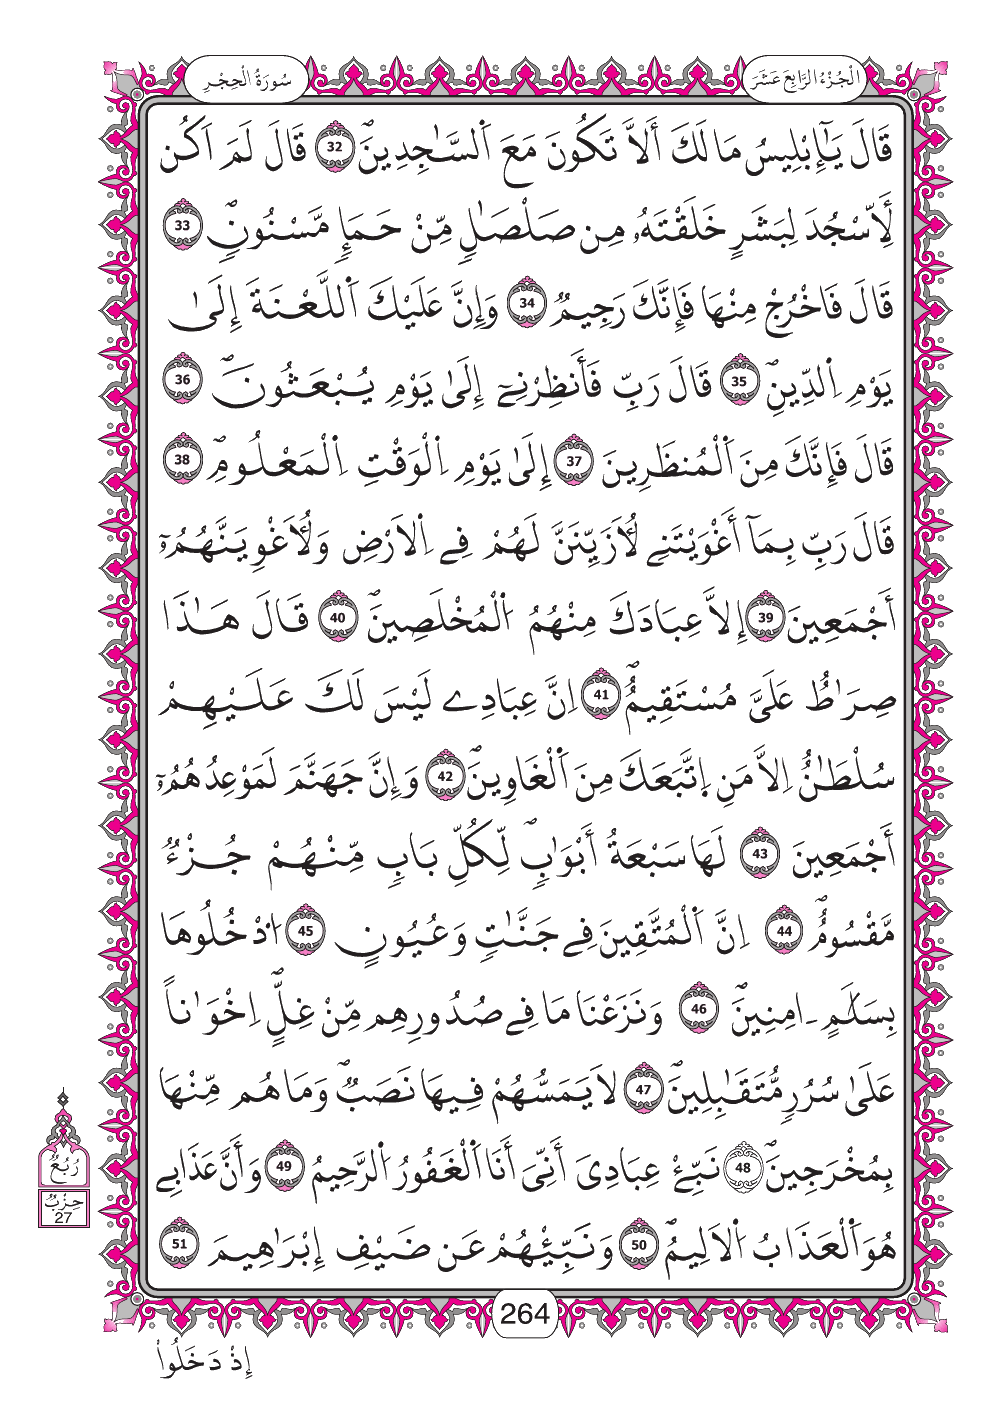 الْجُزْءُ الرَّابِعَ عَشَرَ
سُورَةُ الْحِجْرِ
قَالَ يَـٰٓإِبْلِيسُ مَا لَكَ أَلَّا تَكُونَ مَعَ اَ۬لسَّـٰجِدِينَۖ 32 قَالَ لَمَ اَكُن
لِّأَسْجُدَ لِبَشَرٍ خَلَقْتَهُۥ مِن صَلْصَـٰلٍ مِّنْ حَمَإٍ مَّسْنُونٍۖ 33
قَالَ فَاخْرُجْ مِنْهَا فَإِنَّكَ رَجِيمٌ 34 وَإِنَّ عَلَيْكَ اَ۬للَّعْنَةَ إِلَىٰ
يَوْمِ اِ۬لدِّينِۖ 35 قَالَ رَبِّ فَأَنظِرْنِےٓ إِلَىٰ يَوْمِ يُبْعَثُونَۖ 36
قَالَ فَإِنَّكَ مِنَ اَ۬لْمُنظَرِينَ 37 إِلَىٰ يَوْمِ اِ۬لْوَقْتِ اِ۬لْمَعْلُومِۖ 38
قَالَ رَبِّ بِمَآ أَغْوَيْتَنِے لَأُزَيِّنَنَّ لَهُمْ فِے اِ۬لَارْضِ وَلَأُغْوِيَنَّهُمُۥٓ
أَجْمَعِينَ 39 إِلَّا عِبَادَكَ مِنْهُمُ اُ۬لْمُخْلَصِينَۖ 40 قَالَ هَـٰذَا
صِرَٰطٌ عَلَيَّ مُسْتَقِيمٌۖ 41 اِنَّ عِبَادِے لَيْسَ لَكَ عَلَيْهِمْ
سُلْطَـٰنٌ اِلَّا مَنِ اِ۪تَّبَعَكَ مِنَ اَ۬لْغَاوِينَۖ 42 وَإِنَّ جَهَنَّمَ لَمَوْعِدُهُمُۥٓ
أَجْمَعِينَ 43 لَهَا سَبْعَةُ أَبْوَٰبٍۖ لِّكُلِّ بَابٍ مِّنْهُمْ جُزْءٌ
مَّقْسُومٌۖ 44 اِنَّ اَ۬لْمُتَّقِينَ فِے جَنَّـٰتٍ وَعُيُونٍ 45 اُ۟دْخُلُوهَا
بِسَلَـٰمٍ ـ اٰمِنِينَۖ 46 وَنَزَعْنَا مَا فِے صُدُورِهِم مِّنْ غِلٍّۖ اِخْوَٰناً
عَلَىٰ سُرُرٍ مُّتَقَـٰبِلِينَۖ 47 لَا يَمَسُّهُمْ فِيهَا نَصَبٌۖ وَمَا هُم مِّنْهَا
بِمُخْرَجِينَۖ 48 نَبِّئْ عِبَادِيَ أَنِّيَ أَنَا اَ۬لْغَفُورُ اُ۬لرَّحِيمُ 49 وَأَنَّ عَذَابِے
هُوَ اَ۬لْعَذَابُ اُ۬لَالِيمُۖ 50 وَنَبِّئْهُمْ عَن ضَيْفِ إِبْرَٰهِيمَ 51
رُبُعُ
حِزْبٌ
27
264
إِذْ دَخَلُواْ